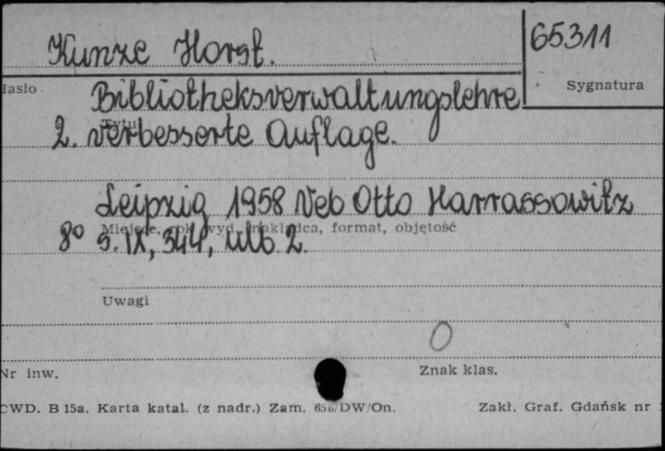 Kunze Horst.
65311
Hasło
Sygnatura
Bibliotheksverwaltungslehre
Tytuł
2. verbesserte Auflage.
Leipzig 1958 Veb Otto Harrassowitz
Miejsce, rok wyd., nakładca, format, objętość
8° S. IX, 344, ulb 2.
Uwagi
0
Nr inw.
Znak klas.
CWD. B 15a. Karta katal. (z nadr.) Zam. 658/DW/On.
Zakł. Graf. Gdańsk nr